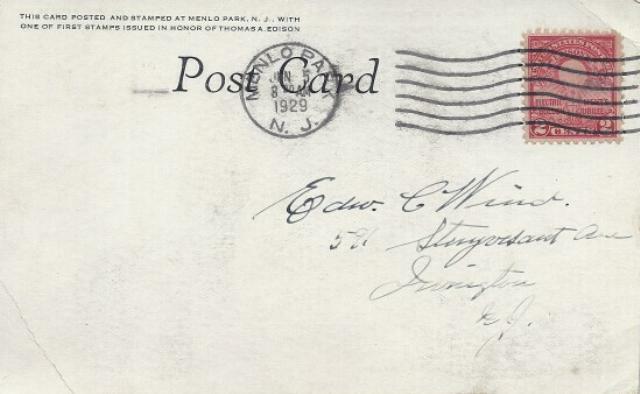 THIS CARD POSTED AND STAMPED AT MENLO PARK, N. J., WITH
ONE OF FIRST STAMPS ISSUED IN HONOR OF THOMAS A. EDISON
Post Card
MENLO PARK
JUN 5
8 AM
1929
N. J.
2 CENTS 2
Edw. C Wind.
591 Stuyvesant Ave
Irvington
N.J.